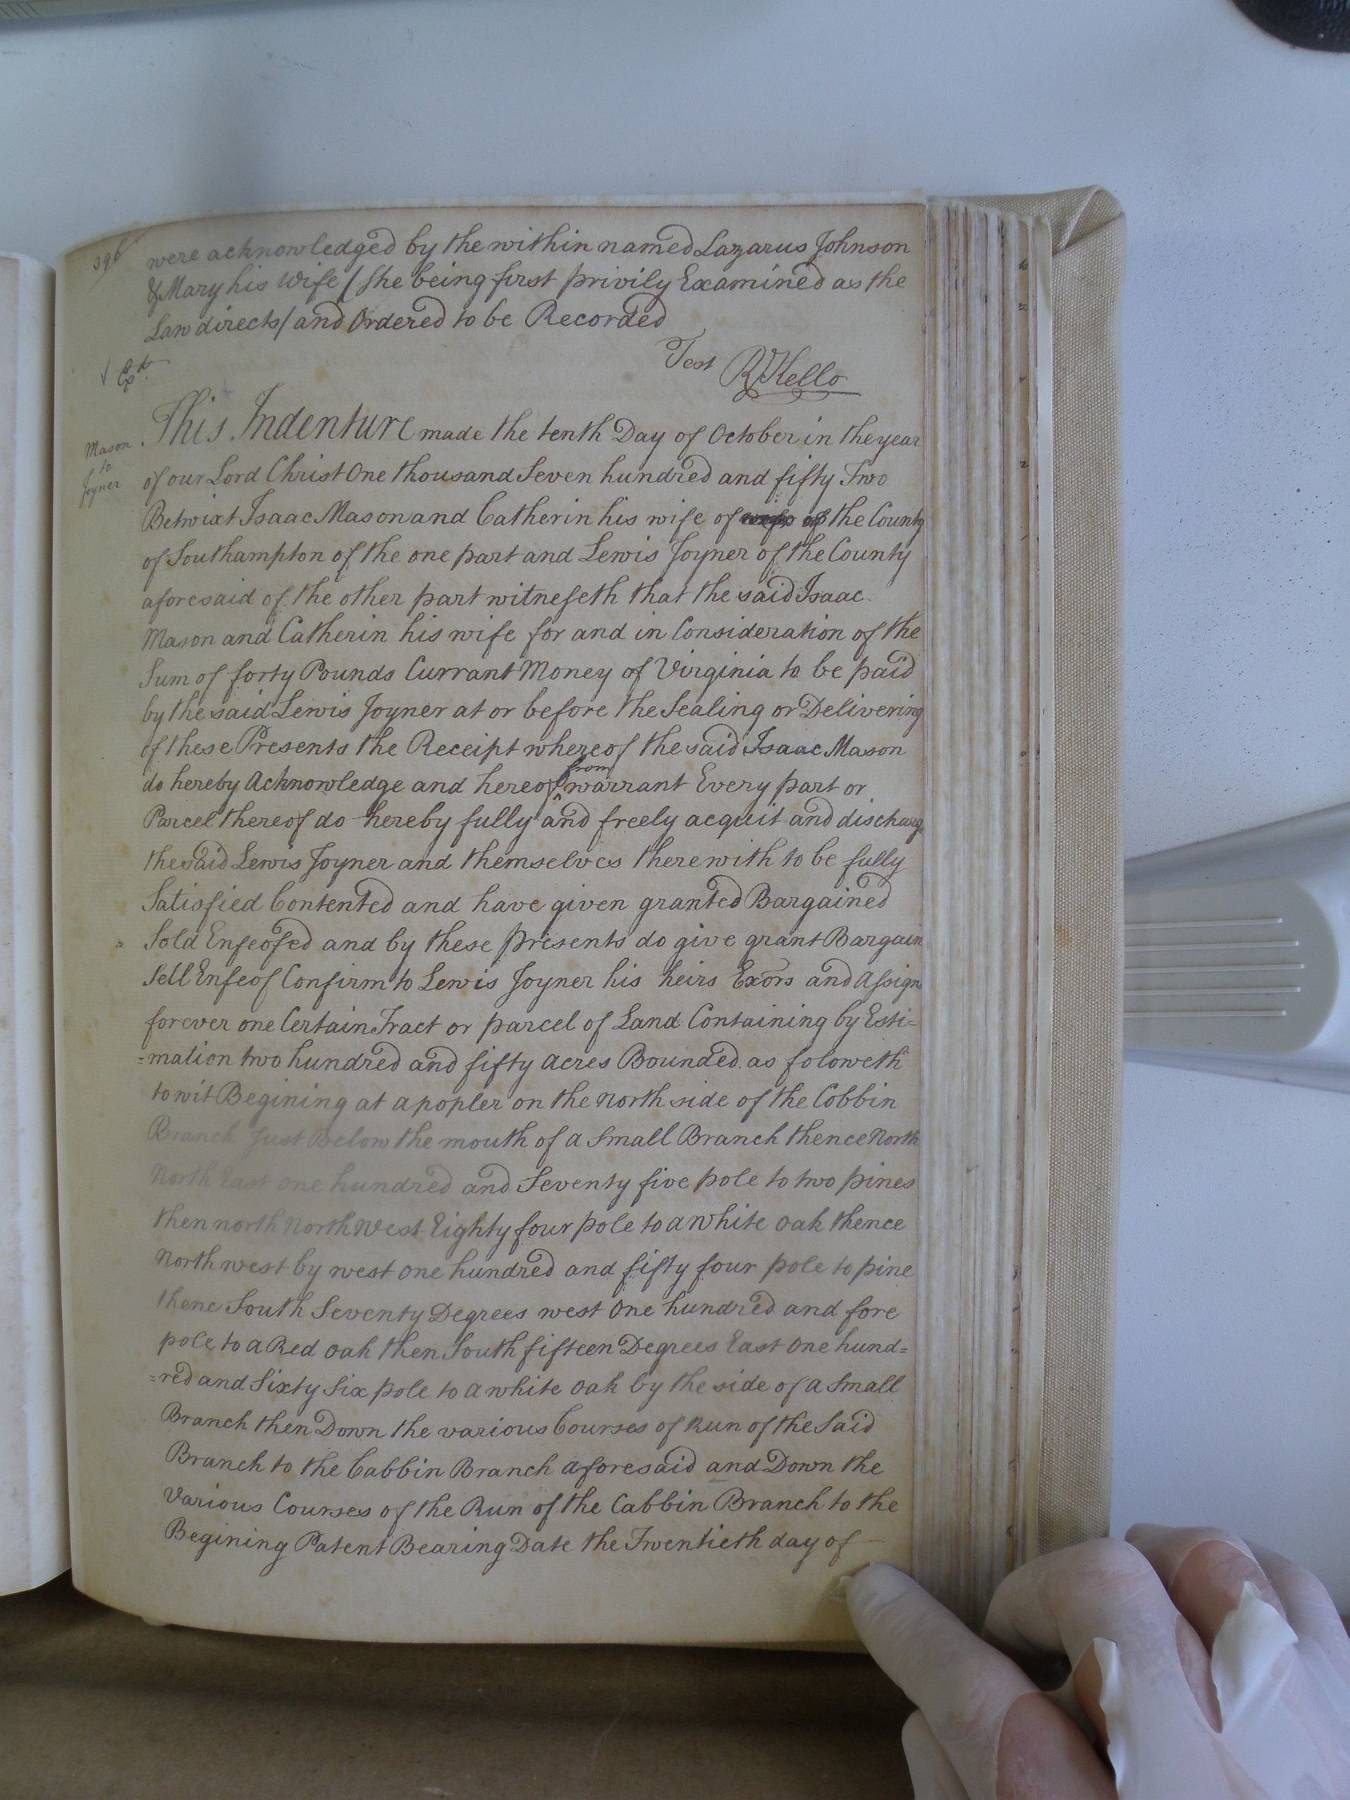 396
were acknowledged by the within named Lazarus Johnson
& Mary his Wife / She being first privily Examined as the
Law directs / and Ordered to be Recorded
Test R Kello
Mason
to
Joyner
This Indenture made the tenth Day of October in the year
of our Lord Christ One thousand Seven hundred and fifty Two
Betwixt Isaac Mason and Catherin his wife of the County
of Southampton of the one part and Lewis Joyner of the County
aforesaid of the other part witneseth that the said Isaac
Mason and Catherin his wife for and in Consideration of the
Sum of forty Pounds Currant Money of Virginia to be paid
by the said Lewis Joyner at or before the Sealing or Delivering
of these Presents the Receipt whereof the said Isaac Mason
do hereby Acknowledge and hereof from warrant Every part or
Parcel thereof do hereby fully and freely acquit and discharg
the said Lewis Joyner and themselves therewith to be fully
Satisfied Contented and have given granted Bargained
Sold Enfeofed and by these presents do give grant Bargain
Sell Enfeof Confirm to Lewis Joyner his heirs Exors and Assign
forever one Certain Tract or parcel of Land Containing by Esti=
=mation two hundred and fifty acres Bounded as foloweth
to wit Begining at a popler on the north side of the Cobbin
Branch Just Below the mouth of a Small Branch thence North
North East one hundred and Seventy five pole to two pines
then north North West Eighty four pole to a white oak thence
North west by west one hundred and fifty four pole to pine
thenc South Seventy Degrees west One hundred and fore
pole to a Red oak then South fifteen Degrees East One hund=
=red and Sixty Six pole to a white Oak by the side of a Small
Branch then Down the various Courses of Run of the Said
Branch to the Cabbin Branch aforesaid and Down the
Various Courses of the Run of the Cabbin Branch to the
Begining Patent Bearing Date the Twentieth day of